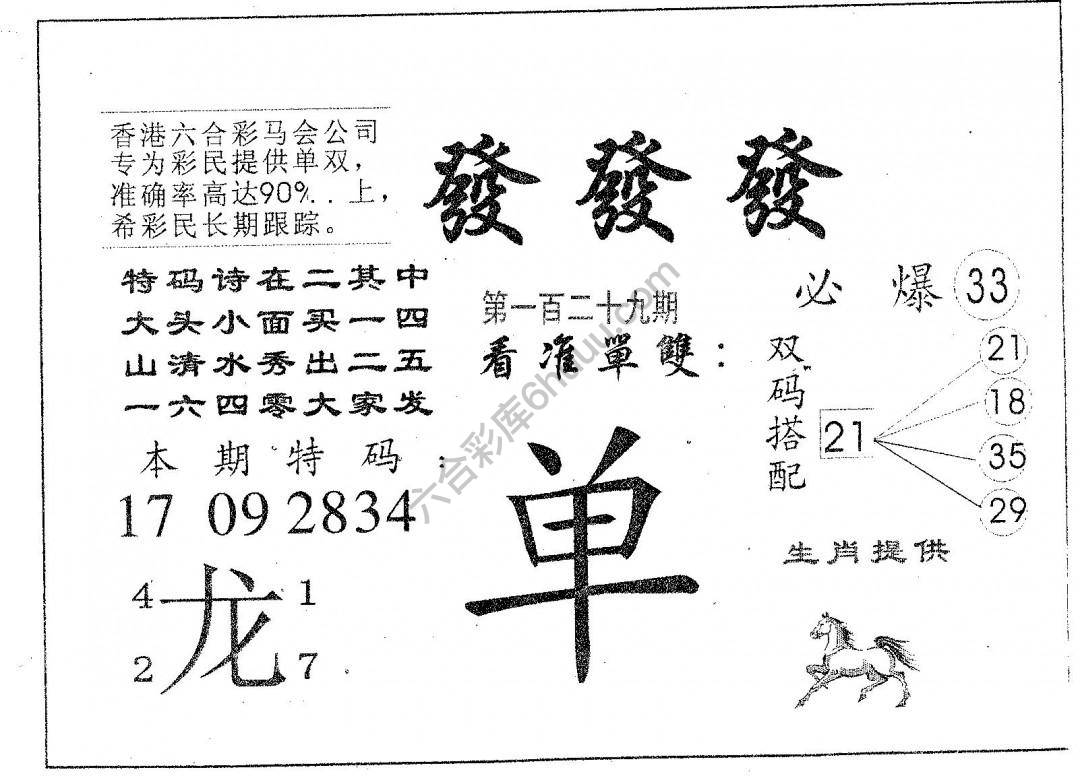 香港六合彩马会公司
专为彩民提供单双,
准确率高达90%..上,
希彩民长期跟踪。
發發發
特码诗在二其中
大头小面买一四
山清水秀出二五
一六四零大家发
第一百二十九期
看准單雙:
必爆33
双码搭配
21
21
18
35
29
本期特码:
17 09 2834
单
生肖提供
4 龙 1
2 7
六合彩库6huuu.com